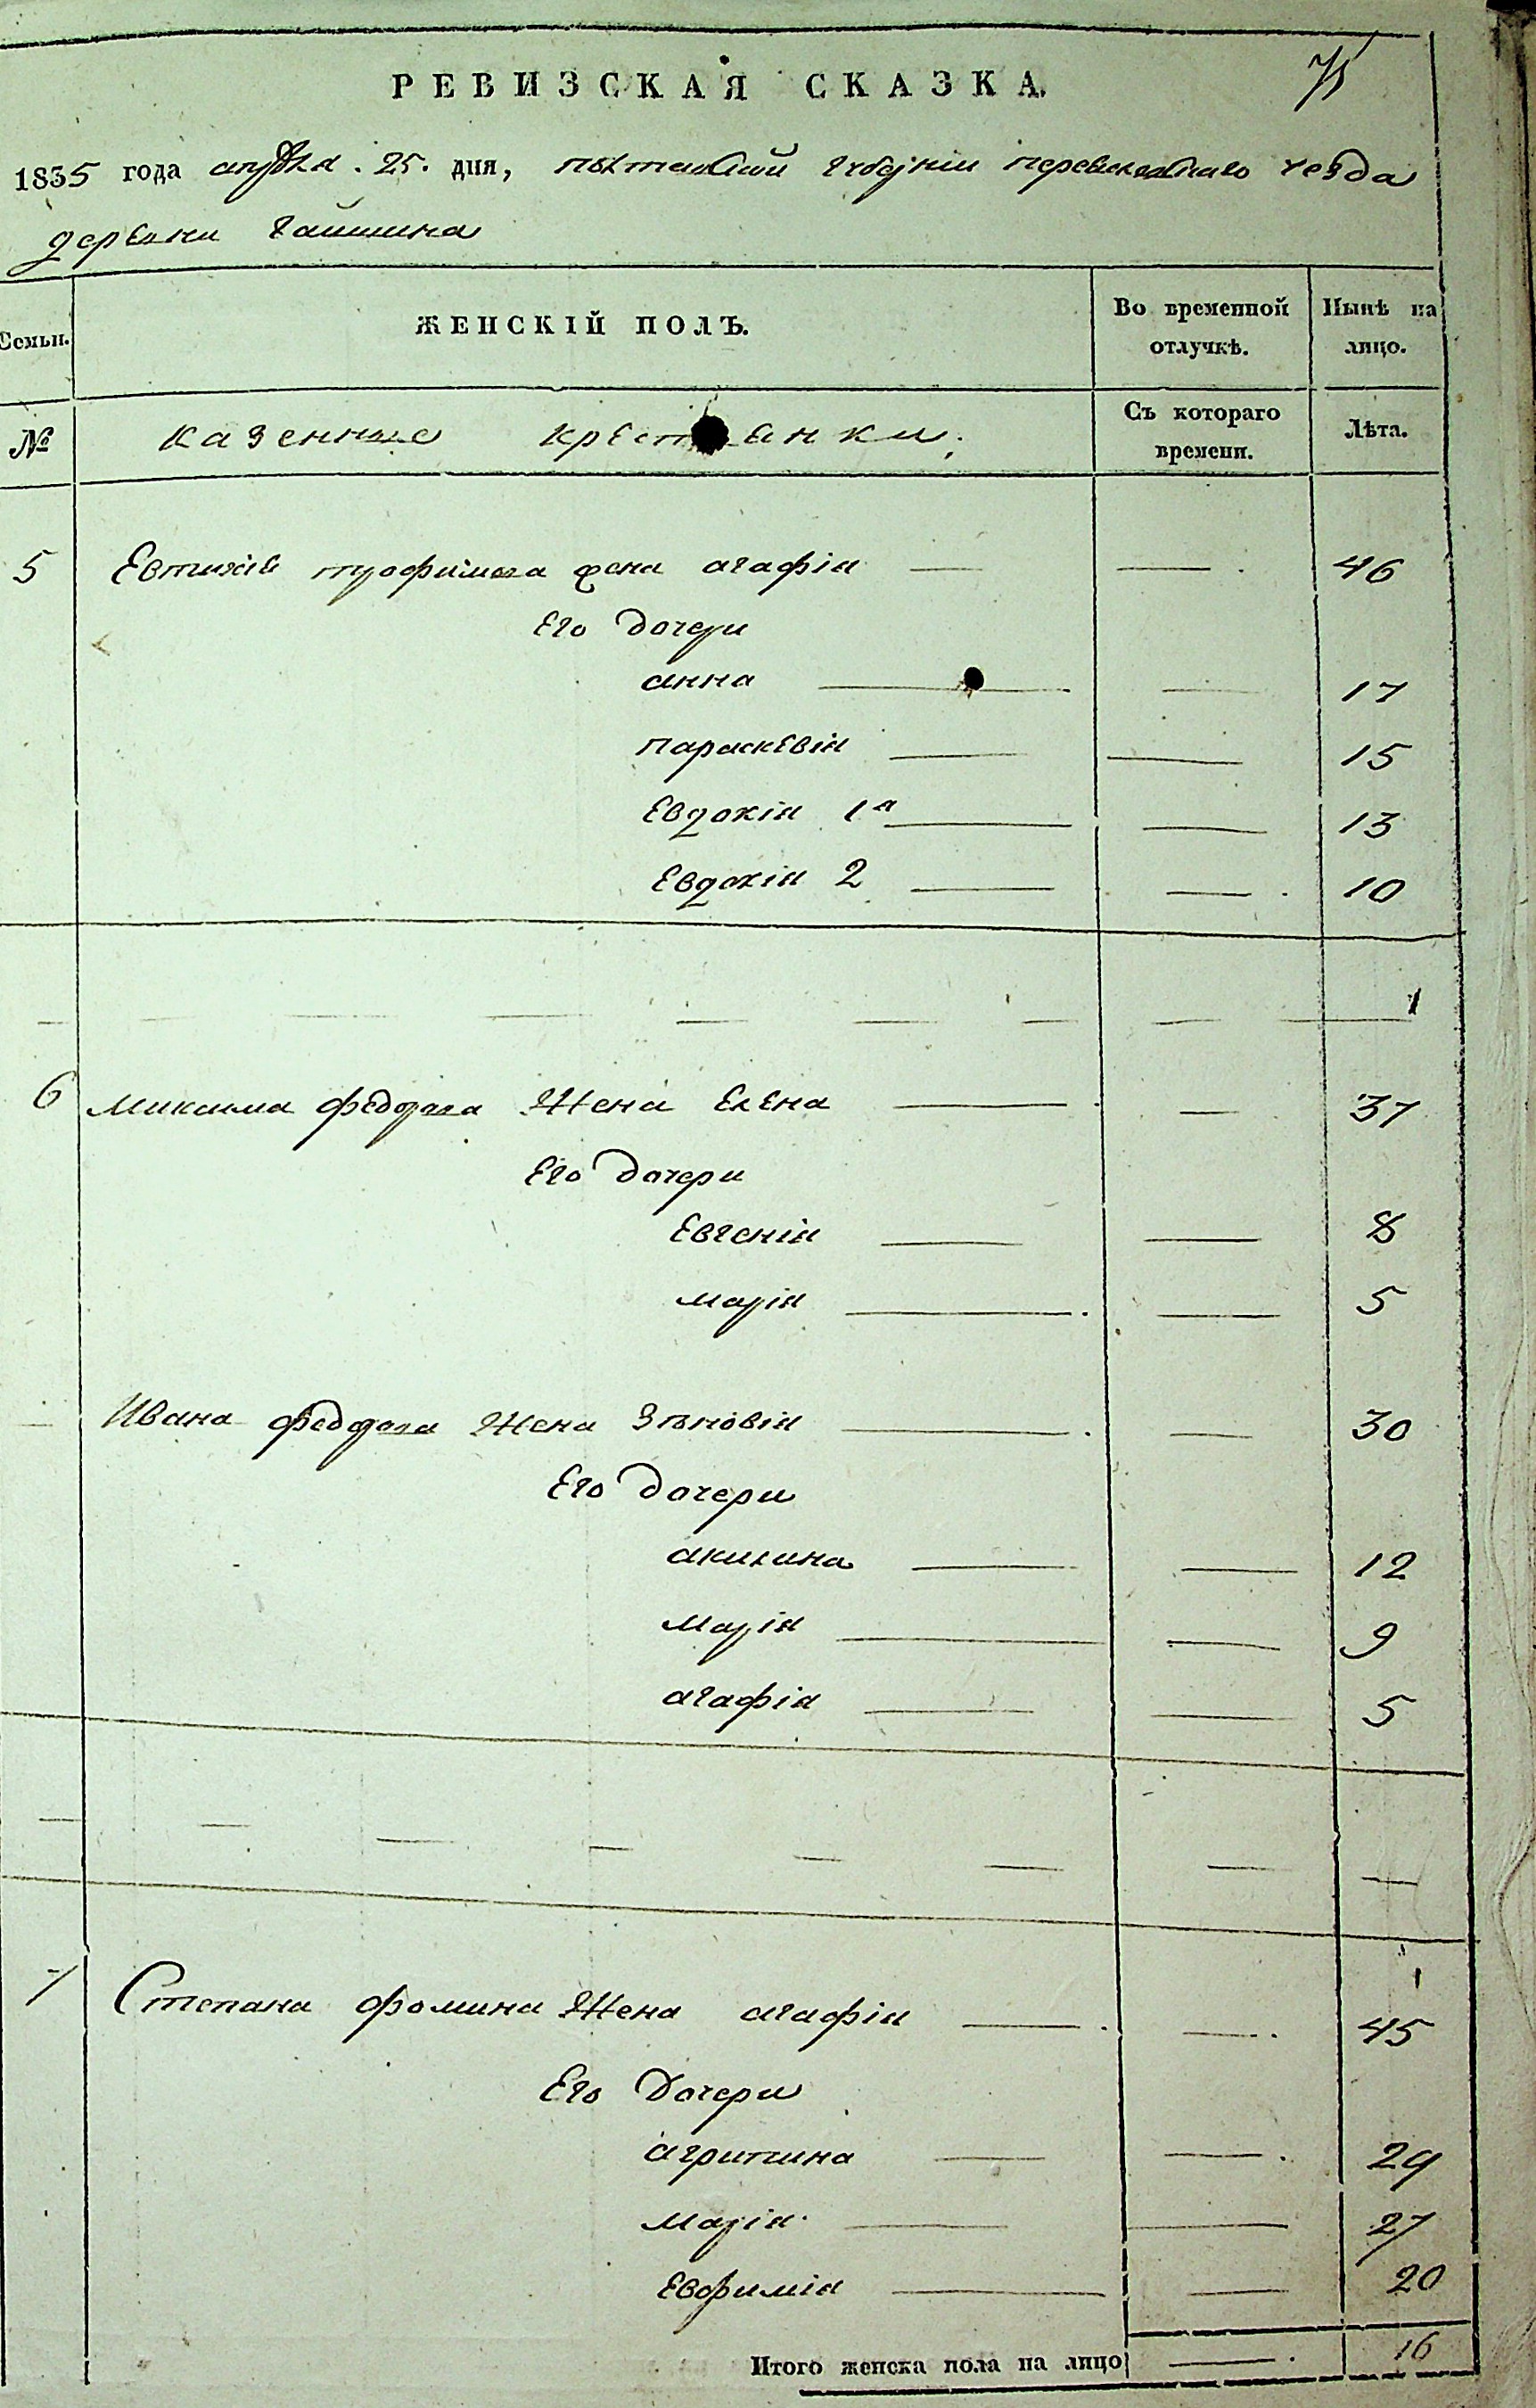 РЕВИЗСКАЯ СКАЗКА.
1835 года апреля. 25. дня, полтавской губерніи переяславскаго уезда
деревни гайшина
Семьи. ЖЕНСКІЙ ПОЛЪ. Во временной отлучкѣ. Нынѣ на лицо.
№ казенные крестьянки. Съ котораго времени. Лѣта.
5 Евтихія трофимова жена агафія — — 46
Его дочери
анна — — 17
параскевія — — 15
Евдокія 1я — — 13
Евдокія 2 — — 10
6 Максима федорова Жена Елена — — 37
Его дочери
Евгенія — — 8
марія — — 5
Ивана федорова Жена Зѣновія — — 30
Его дочери
акилина — — 12
марія — — 9
агафія — — 5
7 Степана фомина Жена агафія — — 45
Его Дочери
агрипина — — 29
марія — — 27
Евфимія — — 20
Итого женска пола на лицо — 16